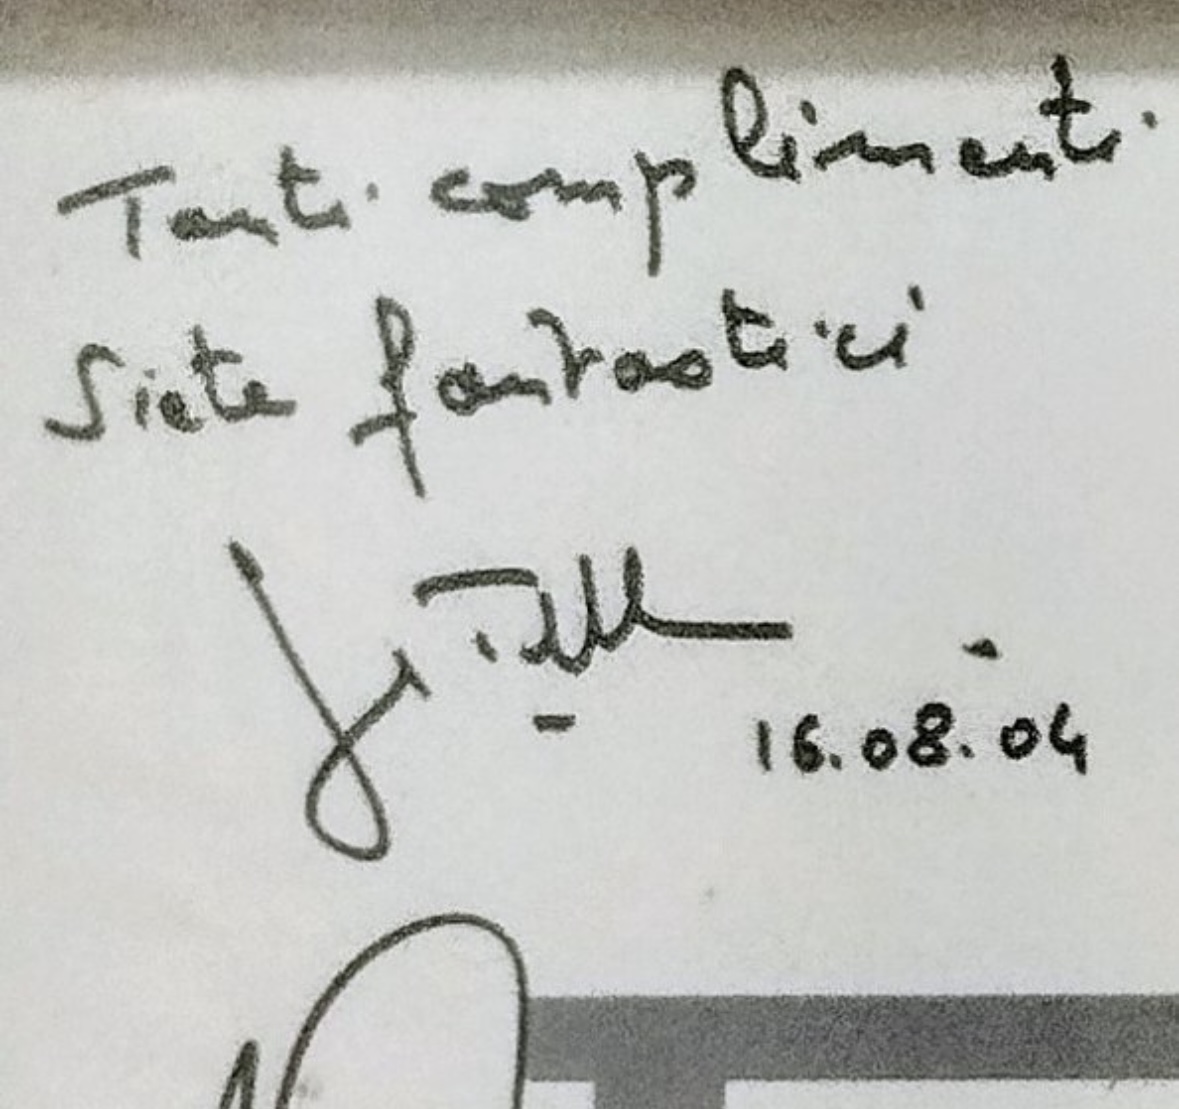 Tanti complimenti
Siete fantastici
16.08.04